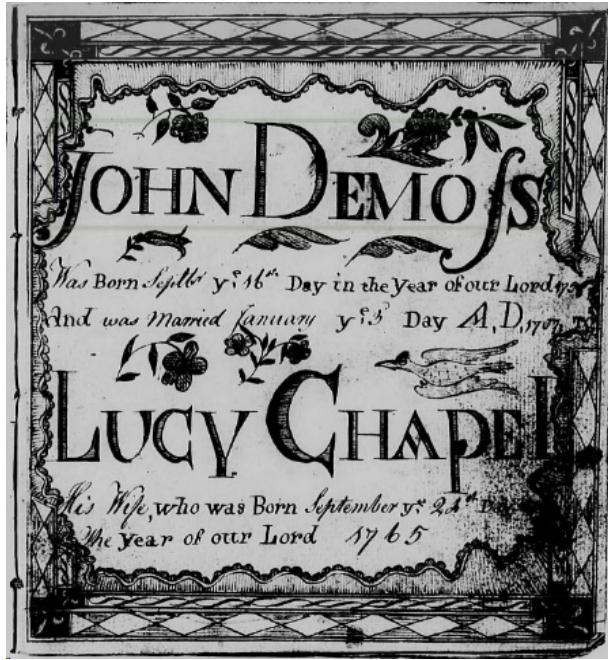 JOHN DEMOſS
Was Born Septbr yͤ 16th Day in the year of our Lord
And was Married January yͤ 5 Day A,D,
LUCY CHAPEL
His Wife, who was Born September yͤ 24th Day
The year of our Lord 1765